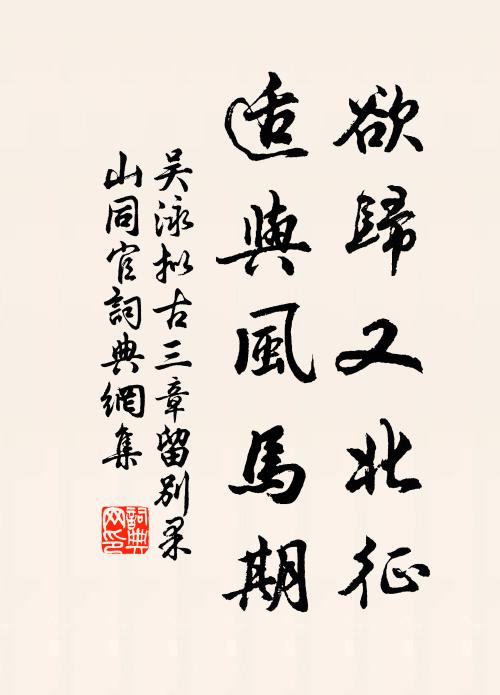 欲歸又北征
适與風馬期
吴泳拟古三章留别杲
山同官詞典網集
詞典
网印